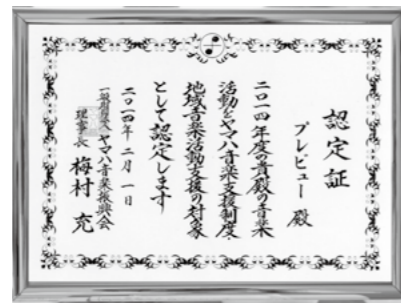 認定証
プレビュー 殿
二〇一四年度の貴殿の音楽
活動をヤマハ音楽支援制度・
地域音楽活動支援の対象
として認定します
二〇一四年 二月 一日
一般財団法人 ヤマハ音楽振興会
理事長 梅村 充